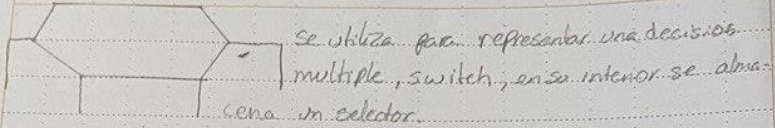 se utiliza para representar una decision
multiple, switch, en su interior se alma-
cena un selector.